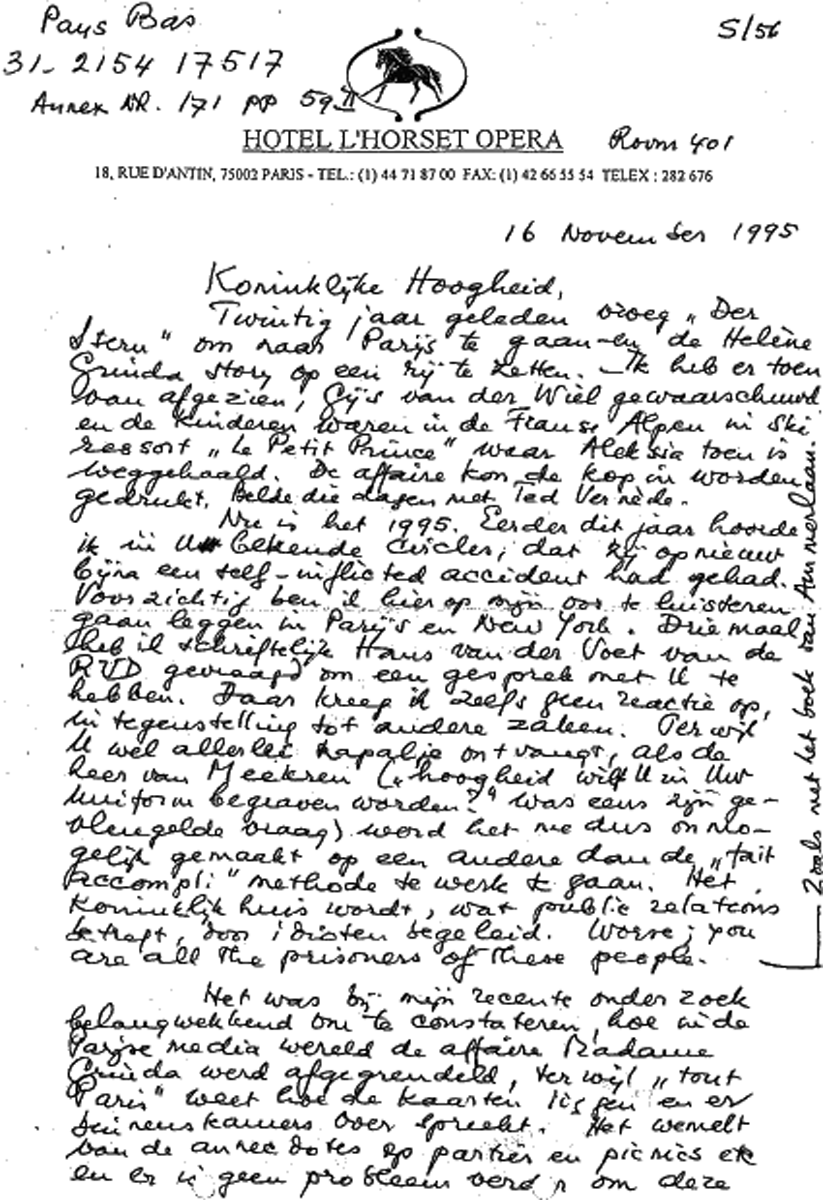 Pays Bas
S/56
31- 2154 17517
Annex NR. 171 pp 59 II
HOTEL L'HORSET OPERA
Room 401
18, RUE D'ANTIN, 75002 PARIS - TEL.: (1) 44 71 87 00 FAX: (1) 42 66 55 54 TELEX : 282 676
16 November 1995
Koninklijke Hoogheid,
Twintig jaar geleden vroeg „Der
Stern" om naar Parijs te gaan en de Helène
Grinda story op een rij te zetten. — Ik heb er toen
van afgezien, Gijs van der Wiel gewaarschuwd
en de kinderen waren in de Franse Alpen in ski
ressort „Le Petit Prince" waar Aleksia toen is
weggehaald. De affaire kon de kop in worden
gedrukt. Belde die dagen met Ted Vernède.
Nu is het 1995. Eerder dit jaar hoorde
ik in U bekende circles, dat zij opnieuw
bijna een self-inflicted accident had gehad.
Voorzichtig ben ik hier op mijn oor te luisteren
gaan leggen in Parijs en New York. Driemaal
heb ik schriftelijk Hans van der Voet van de
RVD gevraagd om een gesprek met U te
hebben. Daar kreeg ik zelfs geen reactie op,
in tegenstelling tot andere zaken. Terwijl
U wel allerlei rapalje ontvangt, als de
heer van Meekren („hoogheid wilt U in Uw
uniform begraven worden?" was eens zijn ge-
vleugelde vraag) werd het me dus onmo-
gelijk gemaakt op een andere dan de „fait
accompli" methode te werk te gaan. Het
Koninklijk huis wordt, wat public relations
betreft, door idioten begeleid. Worse; you
are all the prisoners of these people.
Het was bij mijn recente onderzoek
belangwekkend om te constateren, hoe in de
Parijse media wereld de affaire Madame
Grinda werd afgegrendeld, terwijl „tout
Paris" weet hoe de kaarten liggen en er
binnenskamers over spreekt. Het wemelt
van de annecdotes op parties en picnics etc
en er is geen probleem verder om deze
Zoals met het boek van Ammerlaan.